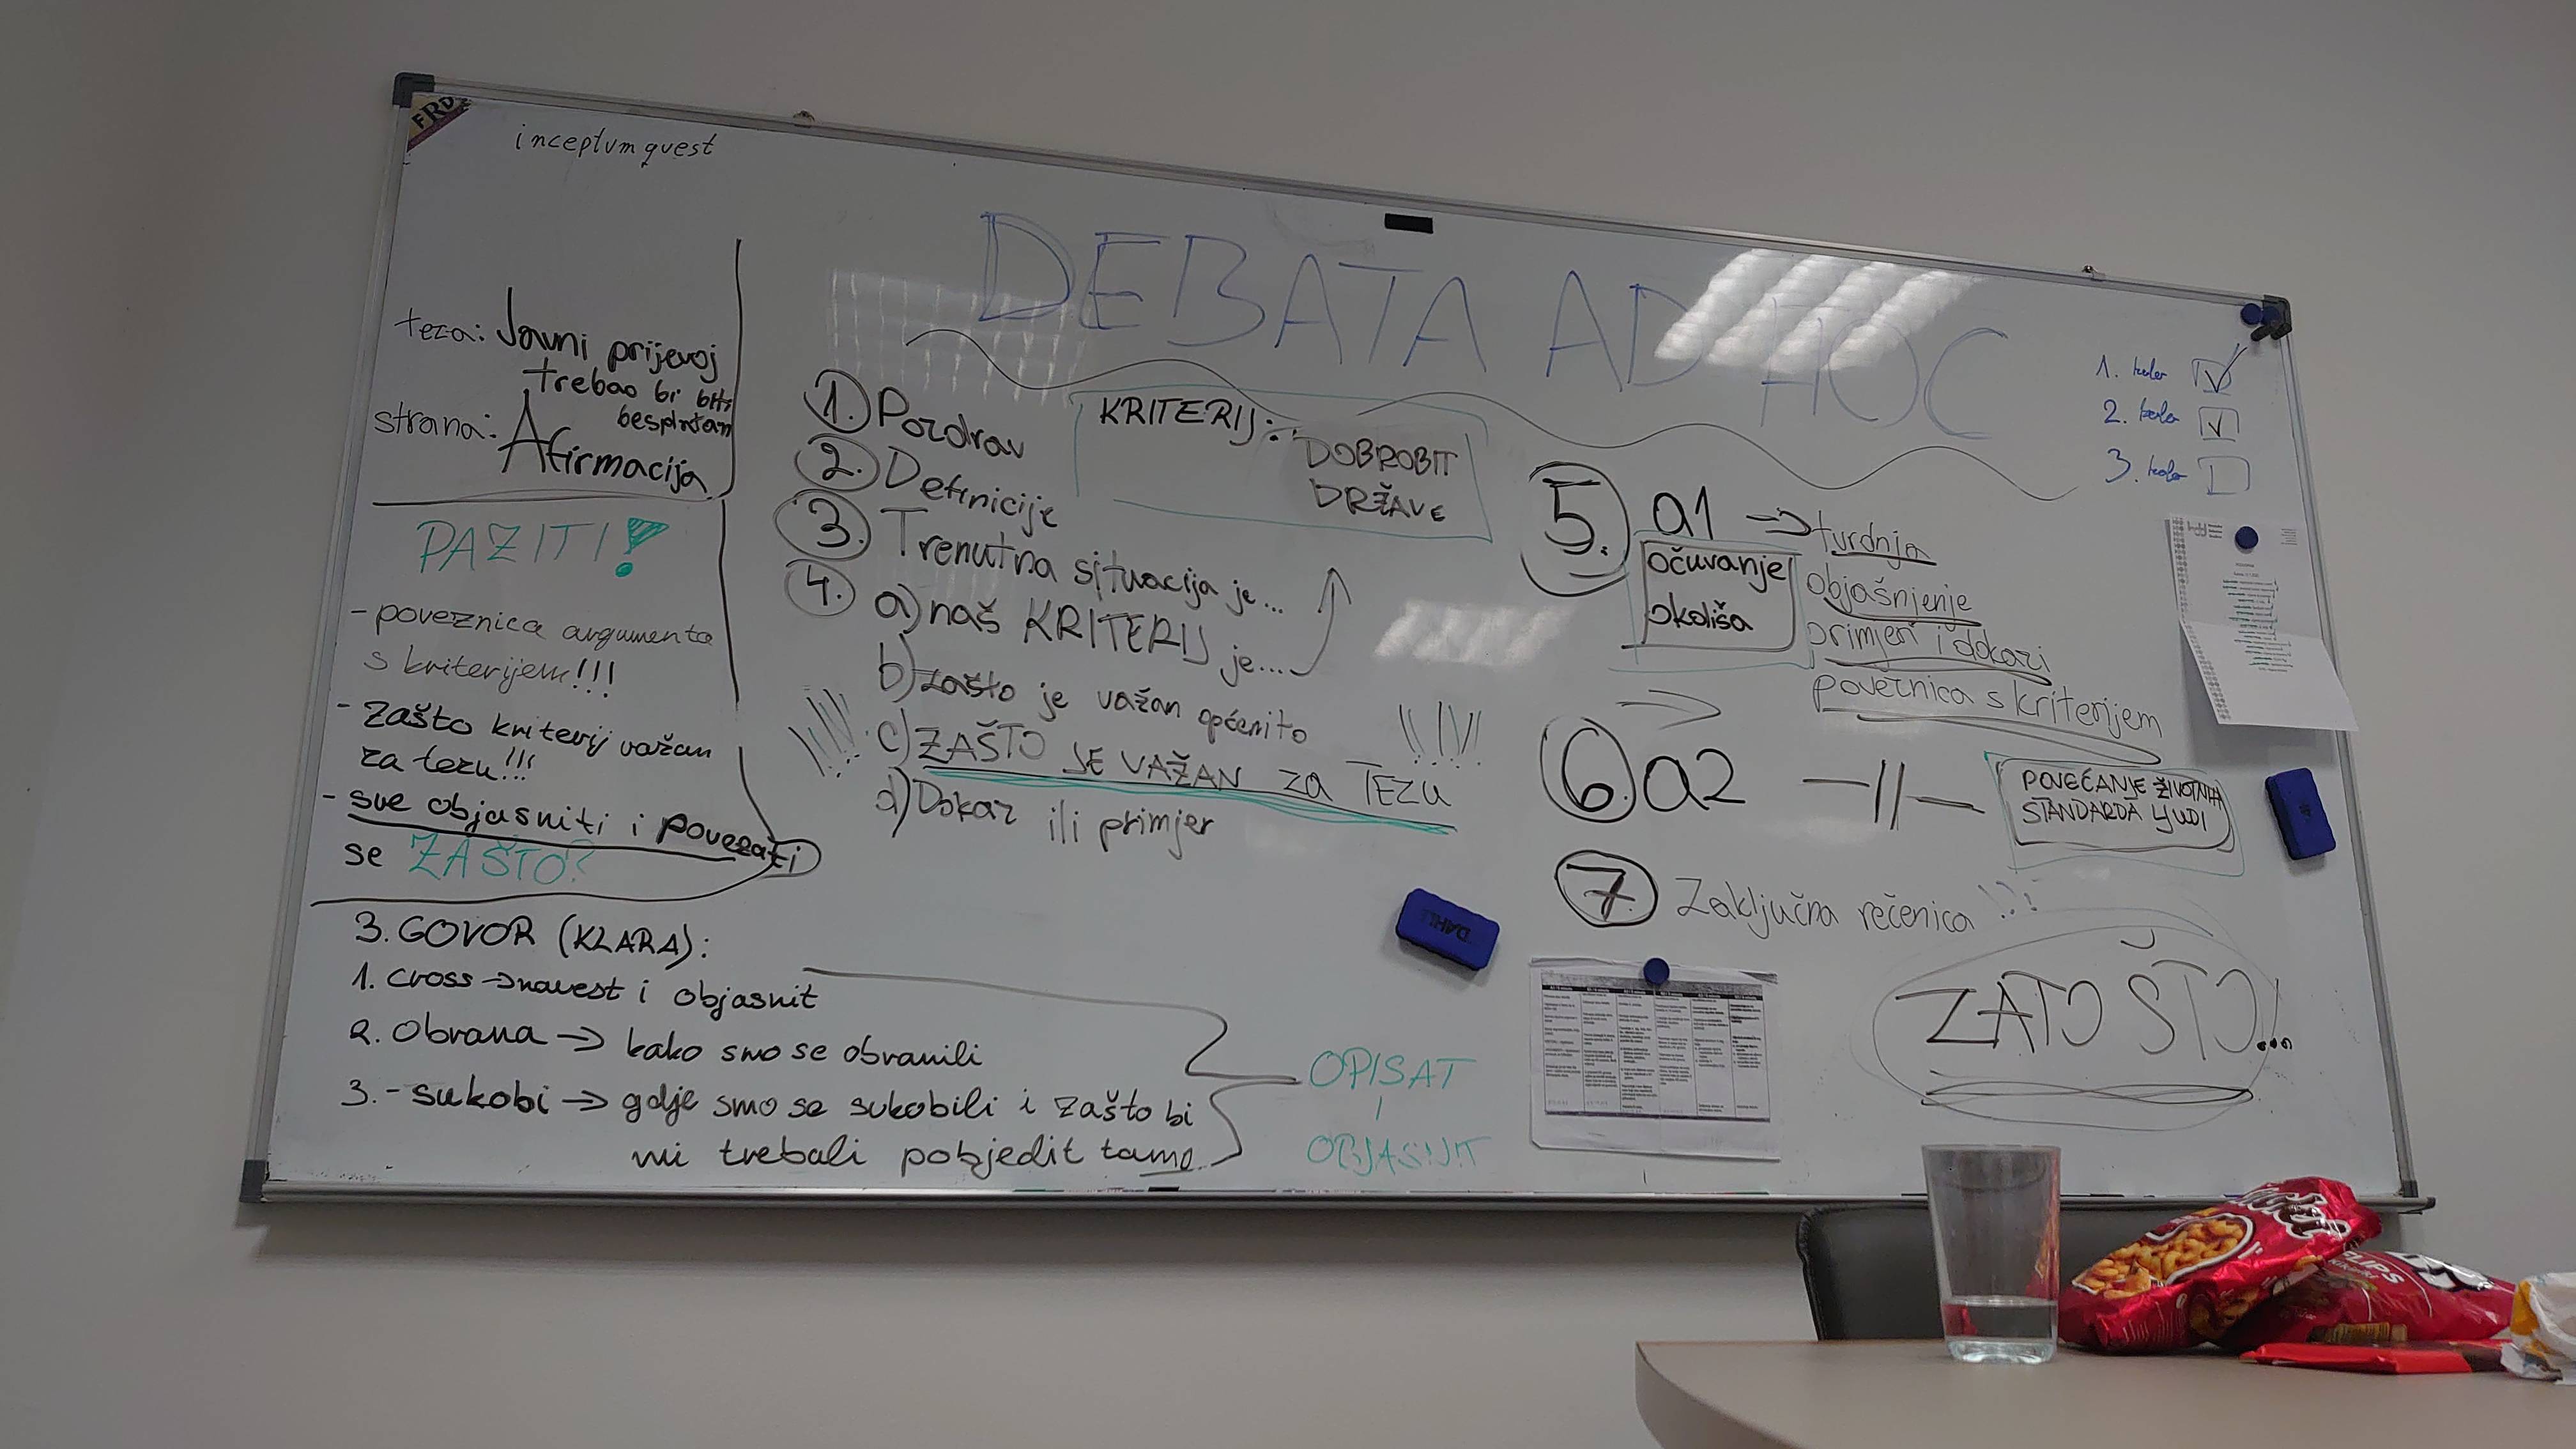 FRD
inceptum quest
DEBATA AD HOC
teza: Javni prijevoj
trebao bi biti
besplatan
strana: Afirmacija
PAZITI!
- poveznica argumenta
s kriterijem!!!
- zašto kriterij važan
za tezu!!!
- sve objasniti i povezati
se ZAŠTO?
3. GOVOR (KLARA):
1. cross → navest i objasnit
2. Obrana → kako smo se obranili
3. - sukobi → gdje smo se sukobili i zašto bi
mi trebali pobjedit tamo
OPISAT
i
OBJASNIT
1. Pozdrav
2. Definicije
3. Trenutna situacija je...
4. a) naš KRITERIJ je....
b) zašto je važan općenito
!!! c) ZAŠTO JE VAŽAN za TEZU !!!!
d) Dokaz ili primjer
KRITERIJ:
DOBROBIT
DRŽAVE
5. a1 → tvrdnja
očuvanje
okoliša
objašnjenje
primjeri i dokazi
poveznica s kriterijem
6. a2 —||—
POVEĆANJE ŽIVOTNOG
STANDARDA LJUDI
7. Zaključna rečenica !?!
ZATO ŠTO...
1. kolo
2. kolo
3. kolo
DAHLE
FLIPS